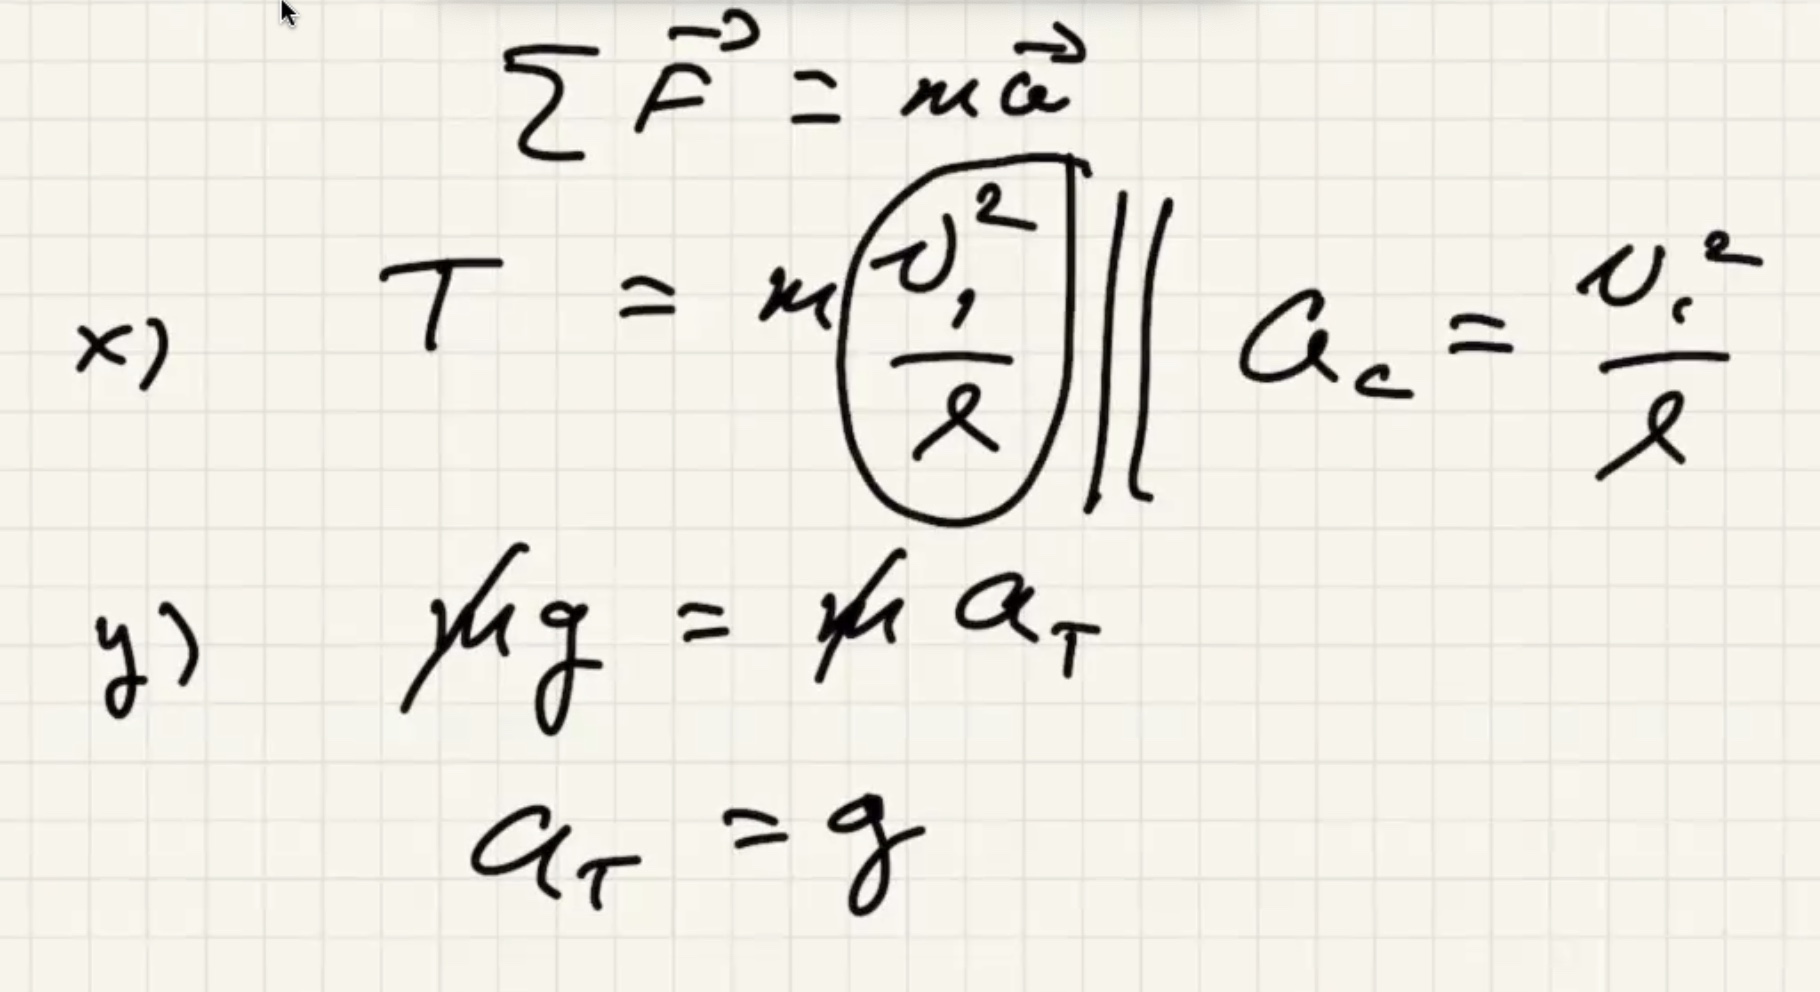 ∑ F⃗ = m a⃗
x) T = m v₁²/ℓ || a_c = v₁²/ℓ
y) mg = m a_T
a_T = g